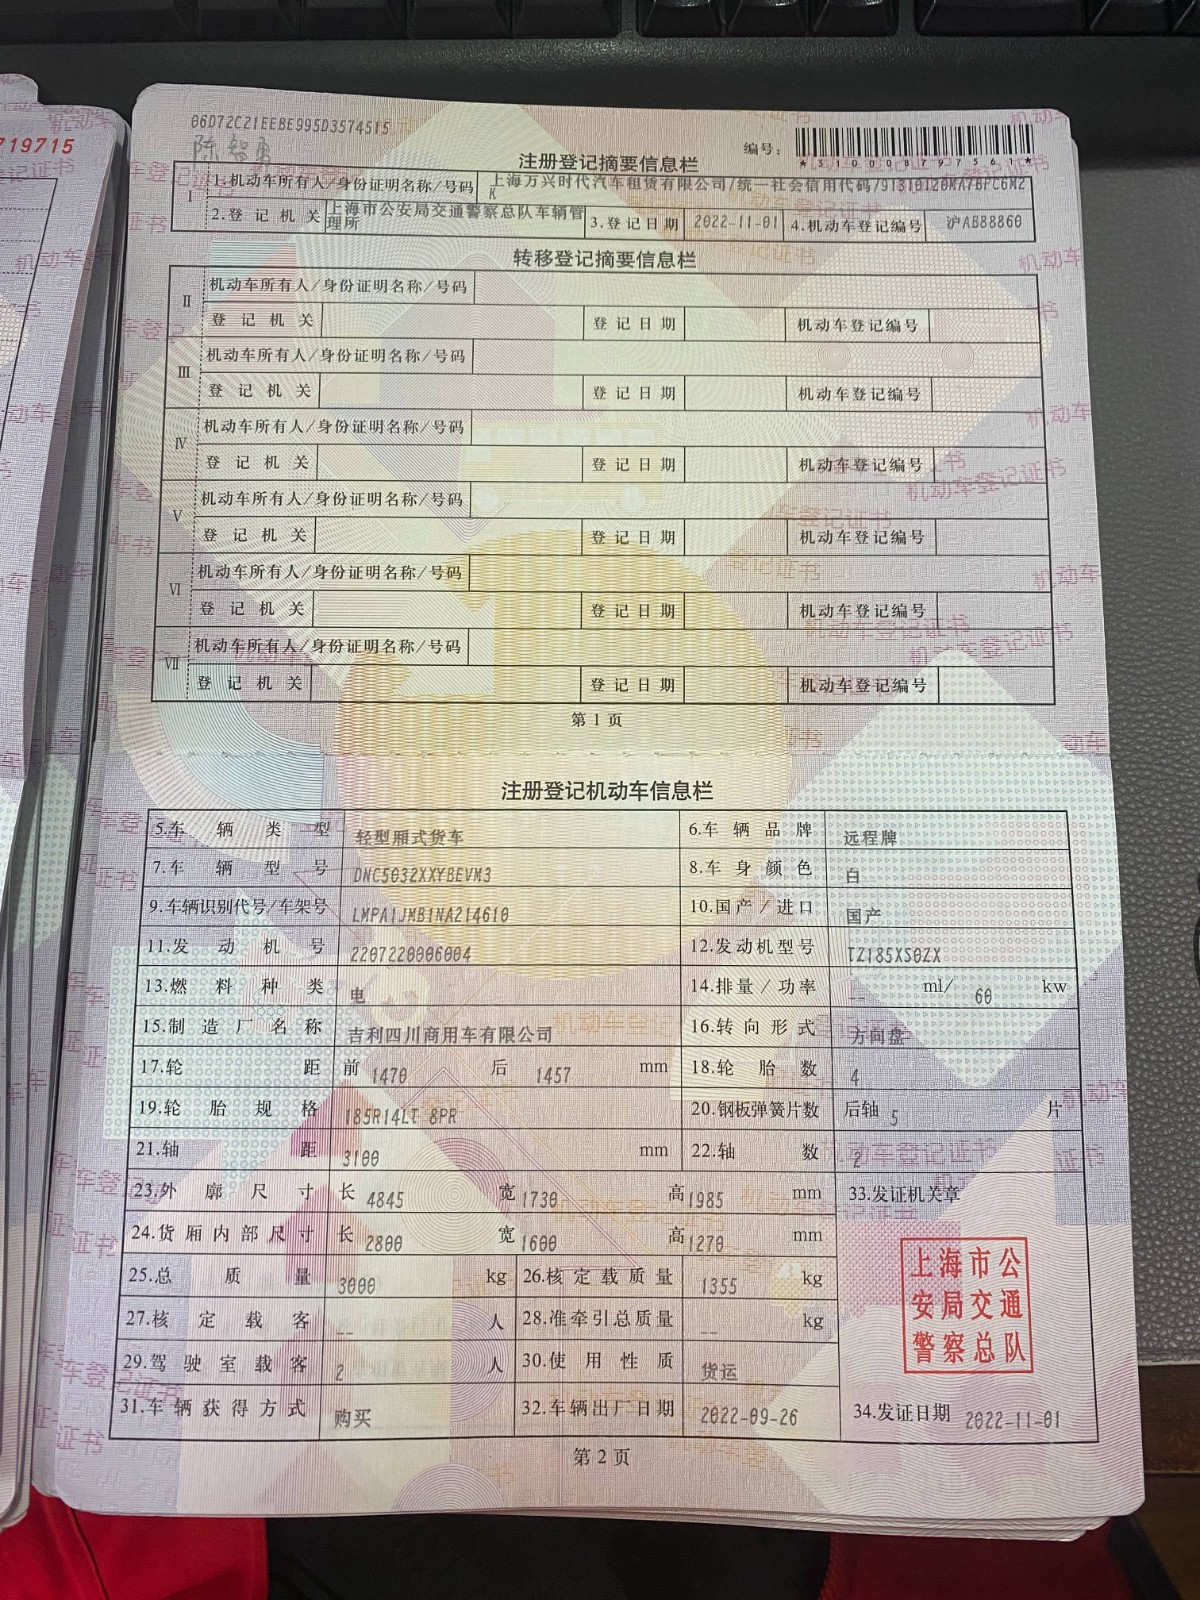 719715
06D72C21EEBE995D3574515
陈智勇
编号：
*310008797561*
注册登记摘要信息栏
I
1.机动车所有人/身份证明名称/号码 上海万兴时代汽车租赁有限公司/统一社会信用代码/91310120MA7BPC6M2K
2.登记机关 上海市公安局交通警察总队车辆管理所 3.登记日期 2022-11-01 4.机动车登记编号 沪AB88860
转移登记摘要信息栏
II
机动车所有人/身份证明名称/号码
登记机关 登记日期 机动车登记编号
III
机动车所有人/身份证明名称/号码
登记机关 登记日期 机动车登记编号
IV
机动车所有人/身份证明名称/号码
登记机关 登记日期 机动车登记编号
V
机动车所有人/身份证明名称/号码
登记机关 登记日期 机动车登记编号
VI
机动车所有人/身份证明名称/号码
登记机关 登记日期 机动车登记编号
VII
机动车所有人/身份证明名称/号码
登记机关 登记日期 机动车登记编号
第1页
注册登记机动车信息栏
5.车辆类型 轻型厢式货车 6.车辆品牌 远程牌
7.车辆型号 DNC5032XXYBEVM3 8.车身颜色 白
9.车辆识别代号/车架号 LMPA1JMB1NA214610 10.国产/进口 国产
11.发动机号 2207220006004 12.发动机型号 TZ185XS0ZX
13.燃料种类 电 14.排量/功率 -- ml/ 60 kw
15.制造厂名称 吉利四川商用车有限公司 16.转向形式 方向盘
17.轮距 前 1470 后 1457 mm 18.轮胎数 4
19.轮胎规格 185R14LT 8PR 20.钢板弹簧片数 后轴 5 片
21.轴距 3100 mm 22.轴数 2
23.外廓尺寸 长 4845 宽 1730 高 1985 mm 33.发证机关章
24.货厢内部尺寸 长 2800 宽 1600 高 1270 mm
25.总质量 3000 kg 26.核定载质量 1355 kg
27.核定载客 -- 人 28.准牵引总质量 -- kg
29.驾驶室载客 2 人 30.使用性质 货运
31.车辆获得方式 购买 32.车辆出厂日期 2022-09-26 34.发证日期 2022-11-01
上海市公
安局交通
警察总队
第2页